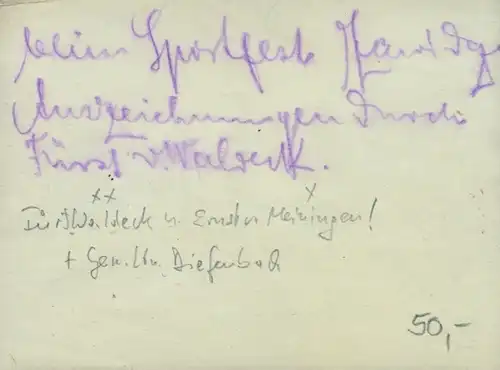 beim Sportfest
Auszeichnungen durch
Fürst v. Waldeck.
xx x
Fürst Waldeck u. Ernst v Meiningen!
+ Gen. Ltn. Diefenbach
50,-